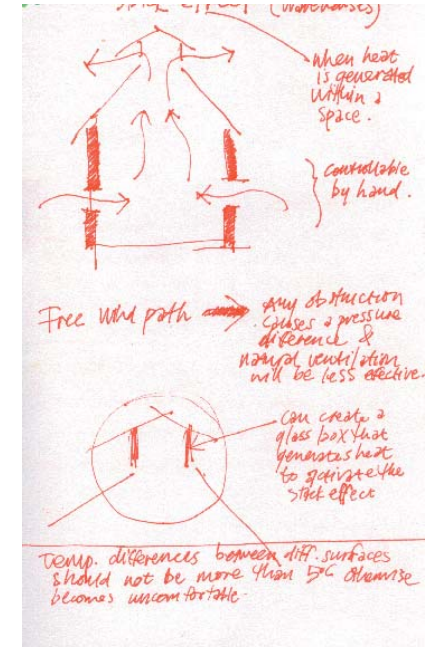 stack effect (warehouses)
when heat
is generated
within a
space.
controllable
by hand.
Free wind path → Any obstruction
causes a pressure
diference &
natural ventilation
will be less efective.
can create a
glass box that
generates heat
to activate the
stack effect
Temp. differences between diff. surfaces
should not be more than 5°C otherwise
becomes uncomfortable.